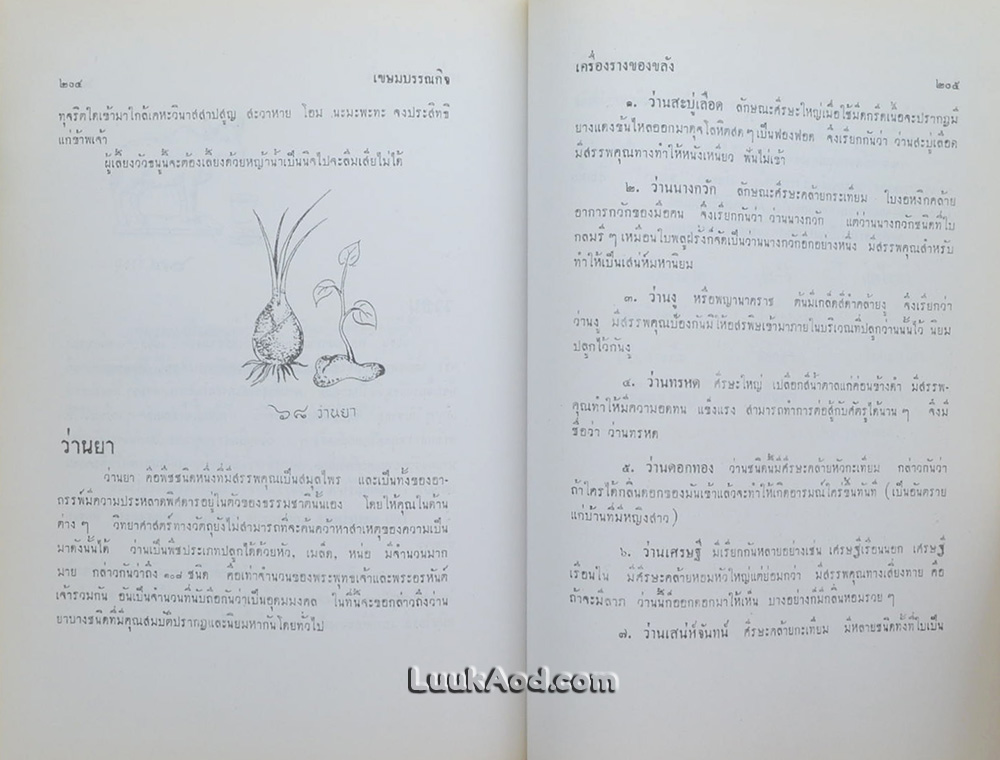 ๒๐๔
เขษมบรรณกิจ
ทุจริตใดเข้ามาใกล้เคหะวินาสสาปสูญ สะวาหาย โอม นะมะพะทะ จงประสิทธิ
แก่ข้าพเจ้า
ผู้เลี้ยงวัวธนูนั้นจะต้องเลี้ยงด้วยหญ้าน้ำเป็นนิจไปจะลืมเสียไม่ได้
๖๘ ว่านยา
ว่านยา
ว่านยา คือพืชชนิดหนึ่งที่มีสรรพคุณเป็นสมุลไพร และเป็นทั้งของอา-
ถรรพ์มีความประหลาดพิศดารอยู่ในตัวของธรรมชาตินั้นเอง โดยให้คุณในด้าน
ต่าง ๆ วิทยาศาสตร์ทางวัตถุยังไม่สามารถที่จะค้นคว้าหาสาเหตุของความเป็น
มาดังนั้นได้ ว่านเป็นพืชประเภทปลูกได้ด้วยหัว, เมล็ด, หน่อ มีจำนวนมาก
มาย กล่าวกันว่าถึง ๑๐๘ ชนิด คือเท่าจำนวนของพระพุทธเจ้าและพระอรหันต์
เจ้ารวมกัน อันเป็นจำนวนที่นับถือกันว่าเป็นอุดมมงคล ในที่นี้จะขอกล่าวถึงว่าน
ยาบางชนิดที่มีคุณสมบัติปรากฏและนิยมหากันโดยทั่วไป
เครื่องรางของขลัง
๒๐๕
๑. ว่านสะบู่เลือด ลักษณะศีรษะใหญ่เมื่อใช้มีดกรีดเนื้อจะปรากฏมี
ยางแดงข้นไหลออกมาดุจโลหิตสดๆ เป็นฟองฟอด จึงเรียกกันว่า ว่านสะบู่เลือด
มีสรรพคุณทางทำให้หนังเหนียว ฟันไม่เข้า
๒. ว่านนางกวัก ลักษณะศีรษะคล้ายกระเทียม ใบงอหงิกคล้าย
อาการกวักของมือคน จึงเรียกกันว่า ว่านนางกวัก แต่ว่านนางกวักชนิดที่ใบ
กลมรี ๆ เหมือนใบพลูฝรั่งก็จัดเป็นว่านนางกวักอีกอย่างหนึ่ง มีสรรพคุณสำหรับ
ทำให้เป็นเสน่ห์มหานิยม
๓. ว่านงู หรือพญานาคราช ต้นมีเกล็ดสีดำคล้ายงู จึงเรียกว่า
ว่านงู มีสรรพคุณป้องกันมิให้อสรพิษเข้ามาภายในบริเวณที่ปลูกว่านนั้นไว้ นิยม
ปลูกไว้กันงู
๔. ว่านทรหด ศีรษะใหญ่ เปลือกสีน้ำตาลแก่ค่อนข้างดำ มีสรรพ-
คุณทำให้มีความอดทน แข็งแรง สามารถทำการต่อสู้กับศัตรูได้นาน ๆ จึงมี
ชื่อว่า ว่านทรหด
๕. ว่านดอกทอง ว่านชนิดนี้มีศีรษะคล้ายหัวกะเทียม กล่าวกันว่า
ถ้าใครได้กลิ่นดอกของมันเข้าแล้วจะทำให้เกิดอารมณ์ใคร่ขึ้นทันที (เป็นอันตราย
แก่บ้านที่มีหญิงสาว)
๖. ว่านเศรษฐี มีเรียกกันหลายอย่างเช่น เศรษฐีเรือนนอก เศรษฐี
เรือนใน มีศีรษะคล้ายหอมหัวใหญ่แต่ย่อมกว่า มีสรรพคุณทางเสี่ยงทาย คือ
ถ้าจะมีลาภ ว่านนี้ก็ออกดอกมาให้เห็น บางอย่างก็มีกลิ่นหอมรวย ๆ
๗. ว่านเสน่ห์จันทน์ ศีรษะคล้ายกะเทียม มีหลายชนิดทั้งที่ใบเป็น
LuukAod.com